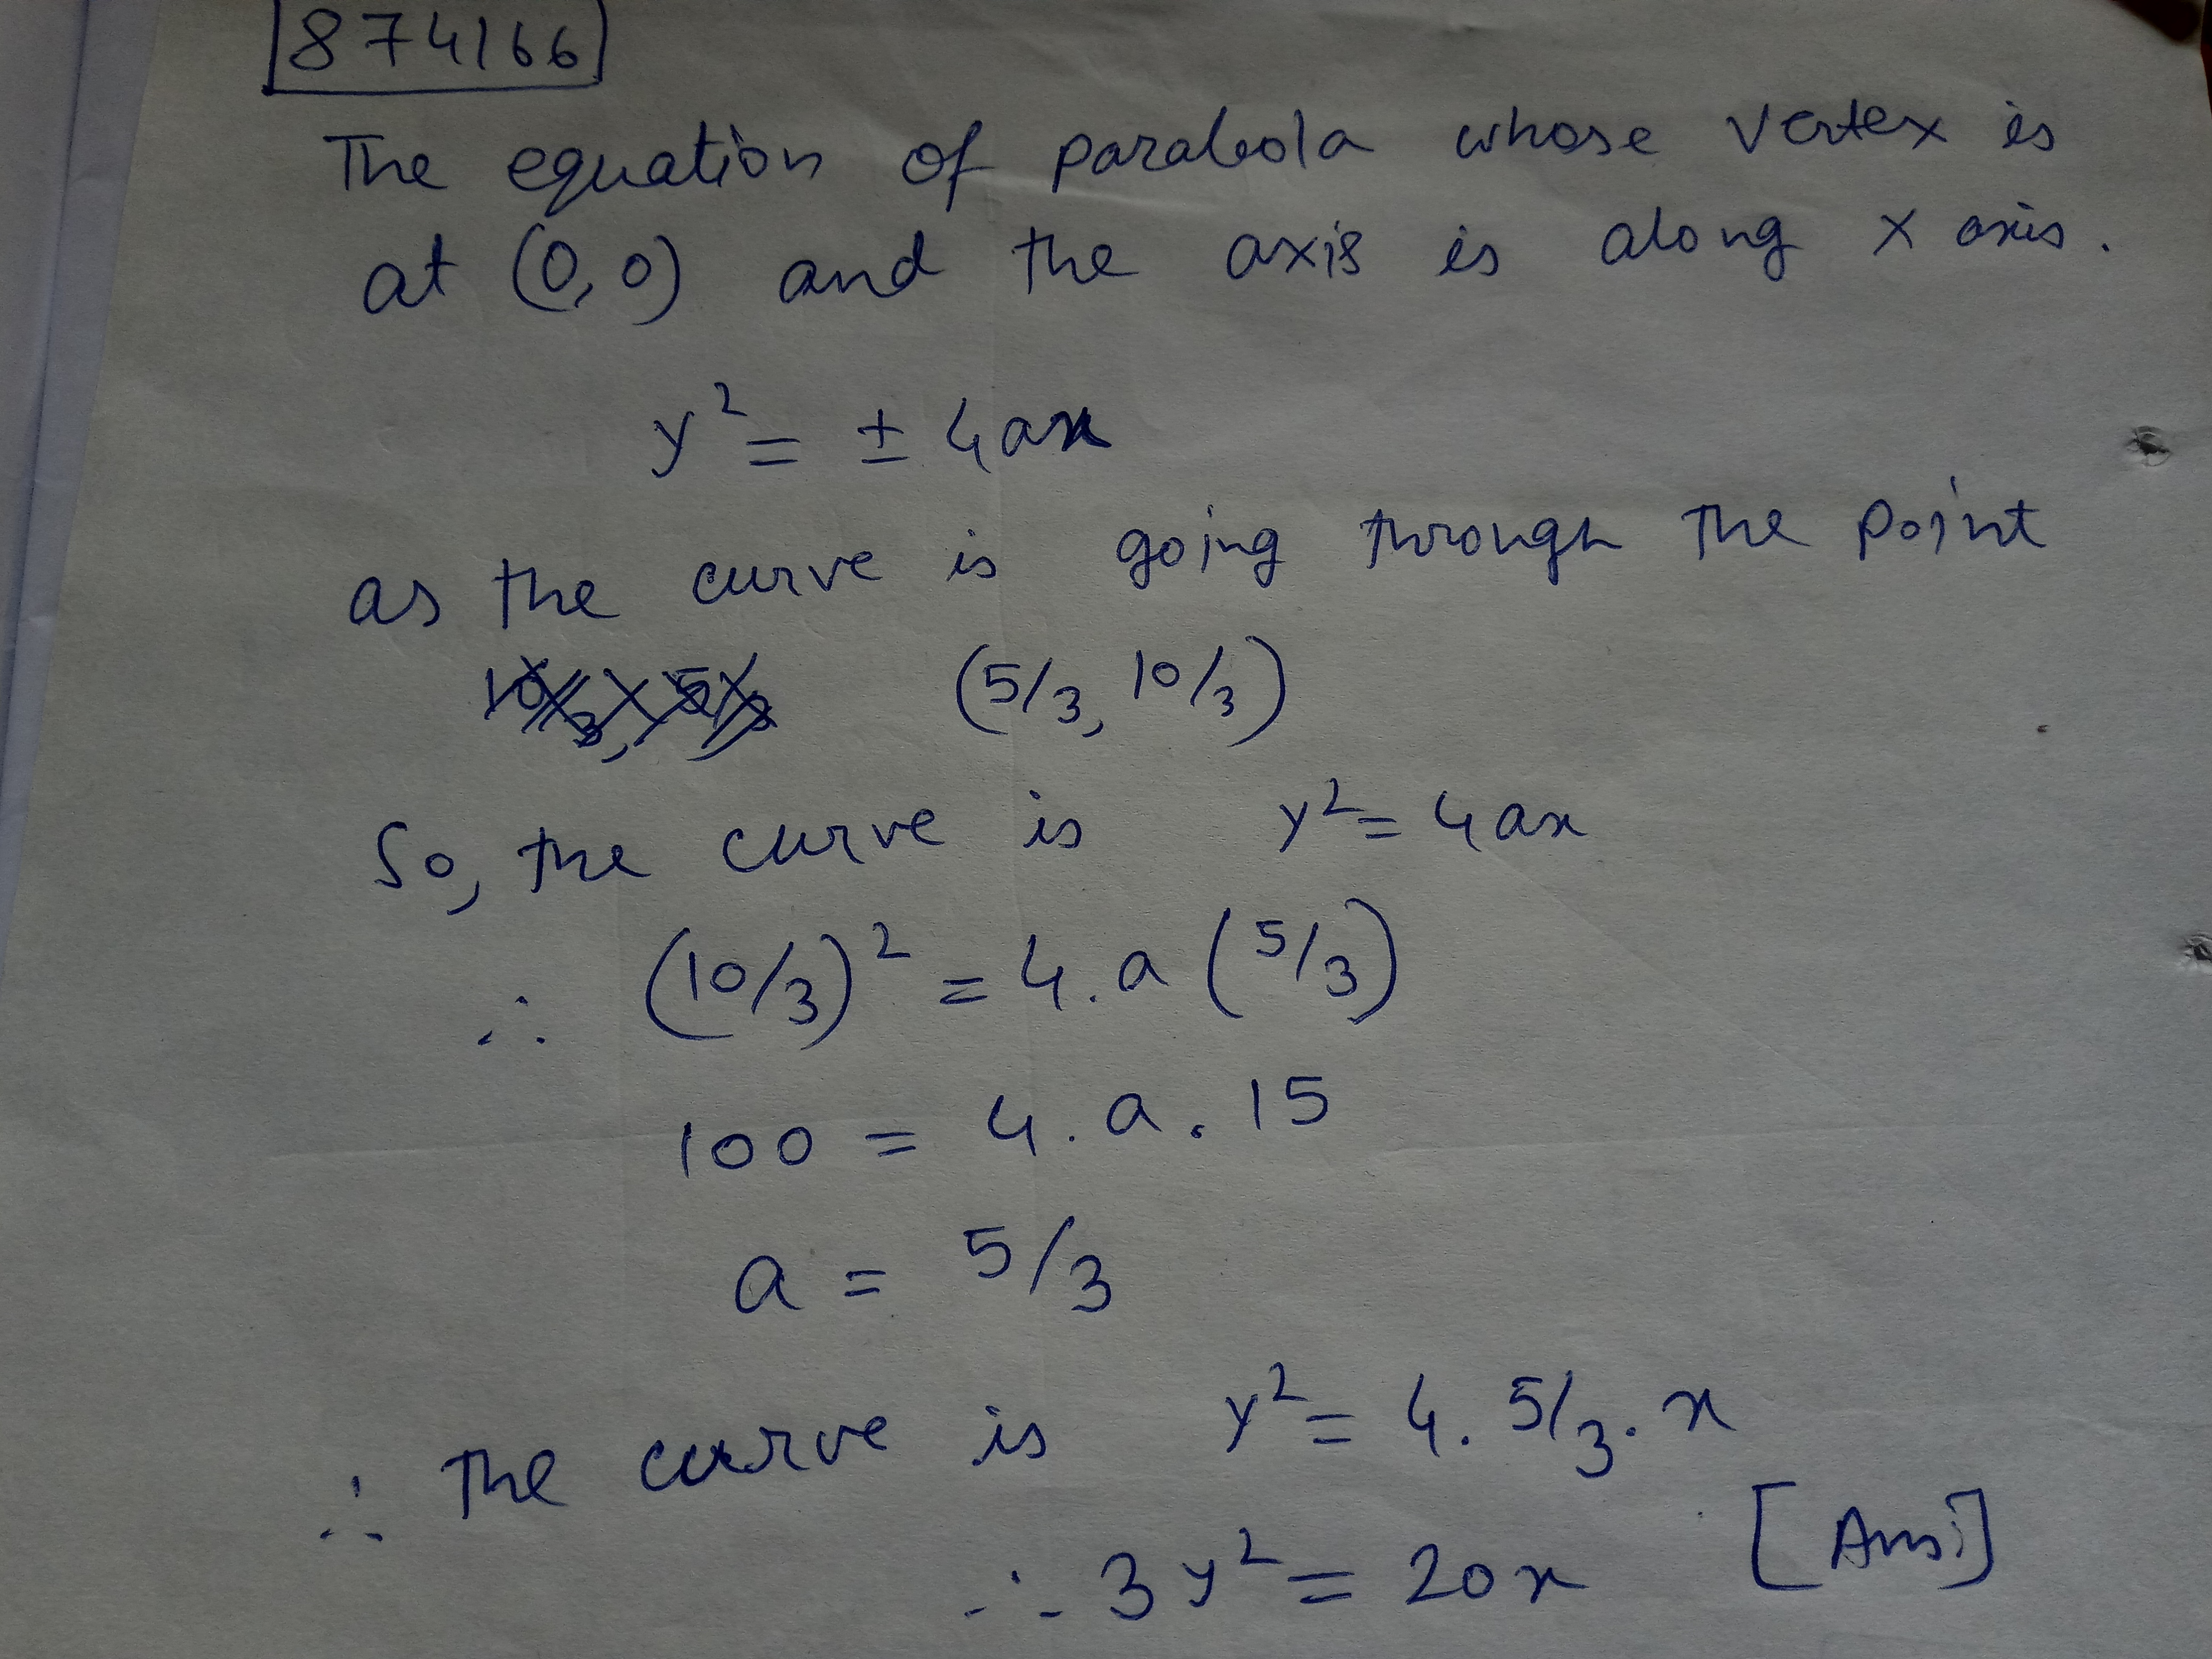 874166
The equation of parabola whose vertex is
at (0,0) and the axis is along x axis.
y² = ± 4ax
as the curve is going through the point
(5/3, 10/3)
So, the curve is y² = 4ax
∴ (10/3)² = 4.a (5/3)
100 = 4.a.15
a = 5/3
∴ The curve is y² = 4. 5/3. x
∴ 3y² = 20x [Ans:]